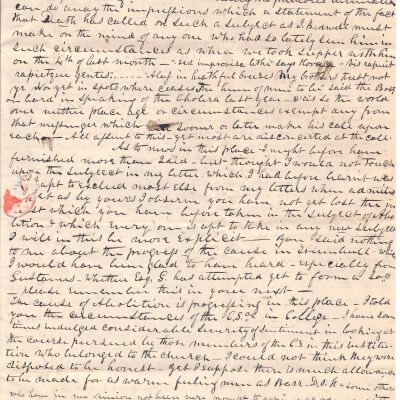 can do away the impressions which a statement of the fact
that Death has called on such a subject as J. Hedwell must
make on the mind of any one who had so lately seen him in
such circumstances as when we took supper with him
on the 4th of last month — "sed improvisa lethi says Horace "vis rapuit
rapietque gentes. Alas in healthful breezes My brothers trust not
ye Nor yet in spots where ceases the hum of men to be said the Bos
Bard in speaking of the cholera last year — yet so the world
over neither place age or circumstances exempt any from
that messenger which sooner or later makes his call upon
each — All assent to this — yet most are disconcerted at the call
As to news in this place I might before have
furnished more than I did — but thought I would not touch
upon the subject in my letter which I had before learnt was
apt to exclude most else from my letters when admit
yet as by yours I observe you have not yet lost the in
est which you have before taken in the subject of Abo
lition & which every one is apt to take in any new subject
I will in this be more explicit — you said nothing
to me about the progress of the cause in Trumbull while
I would have been glad to have heard especially from
whether Esq. G. has attempted yet to form a Soc
— please remember this in your next —
The cause of Abolition is progressing in this place — I told
you the circumstances of the in College — I have some
times indulged considerable severity of sentiment in looking at
the course pursued by those members of the in this institu
tion who belonged to the church I could not think they were
disposed to be honest yet I suppose there is much allowance
to be made for as warm feeling men as Barr. D. & H — some others
who have in my opinion not been